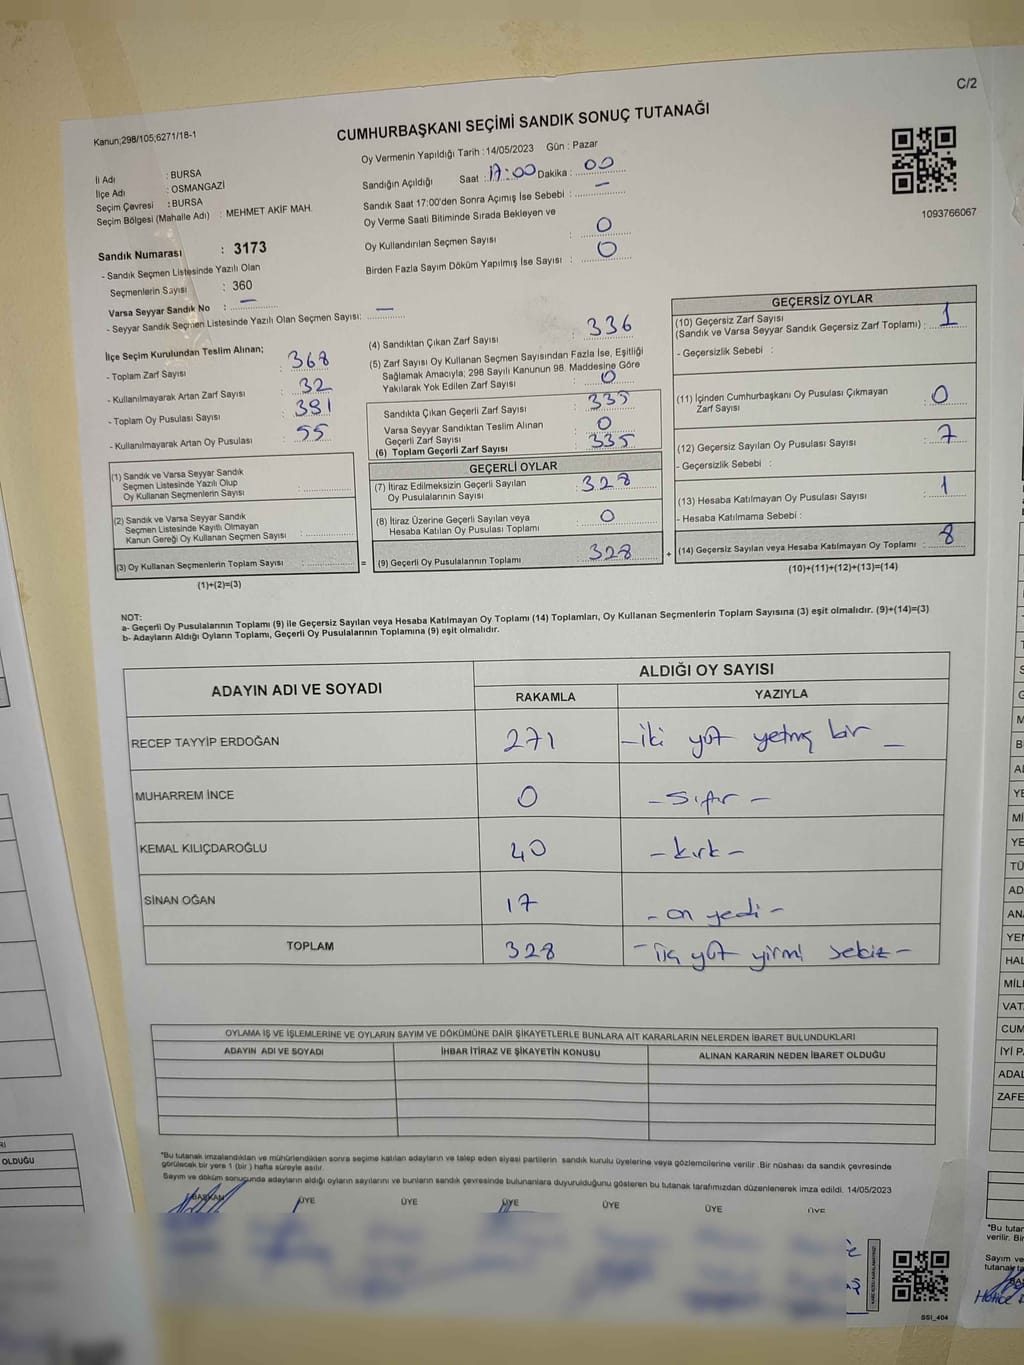 C/2
Kanun;298/105;6271/18-1
CUMHURBAŞKANI SEÇİMİ SANDIK SONUÇ TUTANAĞI
Oy Vermenin Yapıldığı Tarih :14/05/2023 Gün : Pazar
İli Adı : BURSA
İlçe Adı : OSMANGAZİ
Seçim Çevresi : BURSA
Seçim Bölgesi (Mahalle Adı) : MEHMET AKİF MAH.
Sandığın Açıldığı Saat : 17:00 Dakika : 00
Sandık Saat 17:00'den Sonra Açımış İse Sebebi : —
Oy Verme Saati Bitiminde Sırada Bekleyen ve
Oy Kullandırılan Seçmen Sayısı : 0
Birden Fazla Sayım Döküm Yapılmış İse Sayısı : 0
1093766067
Sandık Numarası : 3173
- Sandık Seçmen Listesinde Yazılı Olan
Seçmenlerin Sayısı : 360
Varsa Seyyar Sandık No : —
- Seyyar Sandık Seçmen Listesinde Yazılı Olan Seçmen Sayısı: —
İlçe Seçim Kurulundan Teslim Alınan;
- Toplam Zarf Sayısı : 368
- Kullanılmayarak Artan Zarf Sayısı : 32
- Toplam Oy Pusulası Sayısı : 391
- Kullanılmayarak Artan Oy Pusulası : 55
(1) Sandık ve Varsa Seyyar Sandık
Seçmen Listesinde Yazılı Olup
Oy Kullanan Seçmenlerin Sayısı :
(2) Sandık ve Varsa Seyyar Sandık
Seçmen Listesinde Kayıtlı Olmayan
Kanun Gereği Oy Kullanan Seçmen Sayısı :
(3) Oy Kullanan Seçmenlerin Toplam Sayısı :
(1)+(2)=(3)
(4) Sandıktan Çıkan Zarf Sayısı : 336
(5) Zarf Sayısı Oy Kullanan Seçmen Sayısından Fazla İse, Eşitliği
Sağlamak Amacıyla; 298 Sayılı Kanunun 98. Maddesine Göre
Yakılarak Yok Edilen Zarf Sayısı : 0
Sandıkta Çıkan Geçerli Zarf Sayısı : 335
Varsa Seyyar Sandıktan Teslim Alınan
Geçerli Zarf Sayısı : 0
(6) Toplam Geçerli Zarf Sayısı : 335
GEÇERLİ OYLAR
(7) İtiraz Edilmeksizin Geçerli Sayılan
Oy Pusulalarının Sayısı : 328
(8) İtiraz Üzerine Geçerli Sayılan veya
Hesaba Katılan Oy Pusulası Toplamı : 0
= (9) Geçerli Oy Pusulalarının Toplamı : 328 +
GEÇERSİZ OYLAR
(10) Geçersiz Zarf Sayısı
(Sandık ve Varsa Seyyar Sandık Geçersiz Zarf Toplamı) : 1
- Geçersizlik Sebebi :
(11) İçinden Cumhurbaşkanı Oy Pusulası Çıkmayan
Zarf Sayısı : 0
(12) Geçersiz Sayılan Oy Pusulası Sayısı : 7
- Geçersizlik Sebebi :
(13) Hesaba Katılmayan Oy Pusulası Sayısı : 1
- Hesaba Katılmama Sebebi :
(14) Geçersiz Sayılan veya Hesaba Katılmayan Oy Toplamı : 8
(10)+(11)+(12)+(13)=(14)
NOT:
a- Geçerli Oy Pusulalarının Toplamı (9) ile Geçersiz Sayılan veya Hesaba Katılmayan Oy Toplamı (14) Toplamları, Oy Kullanan Seçmenlerin Toplam Sayısına (3) eşit olmalıdır. (9)+(14)=(3)
b- Adayların Aldığı Oyların Toplamı, Geçerli Oy Pusulalarının Toplamına (9) eşit olmalıdır.
ADAYIN ADI VE SOYADI
ALDIĞI OY SAYISI
RAKAMLA YAZIYLA
RECEP TAYYİP ERDOĞAN 271 - iki yüz yetmiş bir -
MUHARREM İNCE 0 - Sıfır -
KEMAL KILIÇDAROĞLU 40 - kırk -
SİNAN OĞAN 17 - on yedi -
TOPLAM 328 - üç yüz yirmi sekiz -
OYLAMA İŞ VE İŞLEMLERİNE VE OYLARIN SAYIM VE DÖKÜMÜNE DAİR ŞİKAYETLERLE BUNLARA AİT KARARLARIN NELERDEN İBARET BULUNDUKLARI
ADAYIN ADI VE SOYADI İHBAR İTİRAZ VE ŞİKAYETİN KONUSU ALINAN KARARIN NEDEN İBARET OLDUĞU
*Bu tutanak imzalandıktan ve mühürlendikten sonra seçime katılan adayların ve talep eden siyasi partilerin sandık kurulu üyelerine veya gözlemcilerine verilir .Bir nüshası da sandık çevresinde
görülecek bir yere 1 (bir ) hafta süreyle asılır.
Sayım ve döküm sonucunda adayların aldığı oyların sayılarını ve bunların sandık çevresinde bulunanlara duyurulduğunu gösteren bu tutanak tarafımızdan düzenlenerek imza edildi. 14/05/2023
BAŞKAN ÜYE ÜYE ÜYE ÜYE ÜYE ÜYE
SSI_404
OLDUĞU